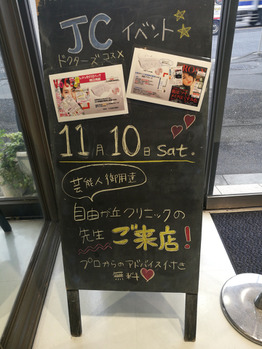 JC イベント
ドクターズコスメ
11月10日 Sat.
芸能人御用達
自由が丘クリニックの
先生 ご来店!
プロからのアドバイス付き
無料